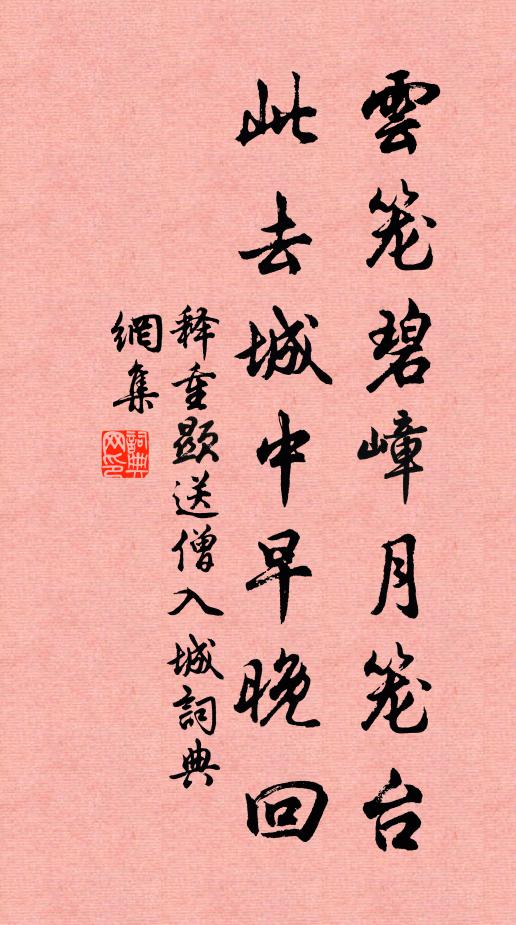 雲笼碧嶂月笼台
此去城中早晚回
释重顯送僧入城詞典
網集
詞典網印